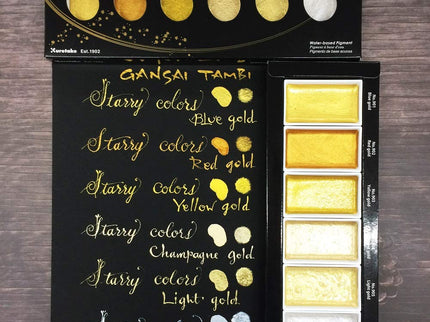 Kuretake Est.1902
Water-based Pigment
Pigment à base d'eau
Pigmento de base acuosa
GANSAI TAMBI
Starry colors
Blue gold
Starry colors
Red gold
Starry colors
Yellow gold
Starry colors
Champagne gold
Starry colors
Light gold
No.901
Blue gold
No.902
Red gold
No.903
Yellow gold
No.905
Light gold